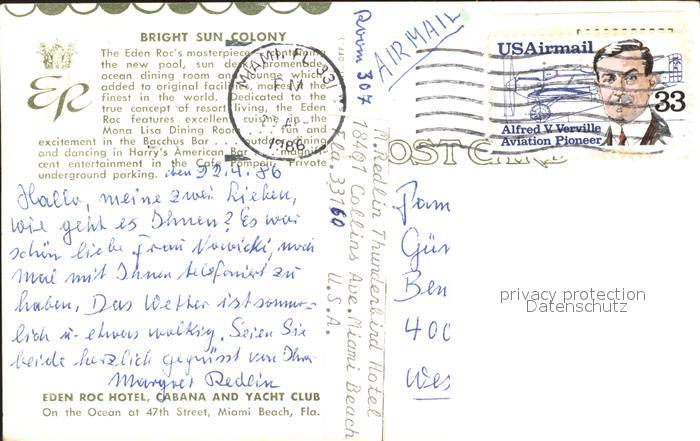 BRIGHT SUN COLONY
The Eden Roc's masterpiece containing
the new pool, sun deck, promenade,
ocean dining room and lounge which
added to original facilities, makes it the
finest in the world. Dedicated to the
true concept of resort living, the Eden
Roc features excellent cuisine in the
Mona Lisa Dining Room fun and
excitement in Bacchus Bar outdoor dining
and dancing in Harry's American Bar magnifi-
cent entertainment in the Cafe Pompeii. Private
underground parking.
ER
den 22.4.86
Hallo, meine zwei Lieben,
wie geht es Ihnen? Es war
schön liebe Frau Nowicki, noch
mal mit Ihnen telefoniert zu
haben. Das Wetter ist sommer-
lich u. etwas wolkig. Seien Sie
beide herzlich gegrüsst von Ihrer
Margret Redlin
EDEN ROC HOTEL, CABANA AND YACHT CLUB
On the Ocean at 47th Street, Miami Beach, Fla.
Room 307
M. Redlin Thunderbird Hotel
18401 Collins Ave. Miami Beach
Fla. 33160
U.S.A.
AIRMAIL
MIAMI, FL 331
PM
1986
USAirmail
33
Alfred V. Verville
Aviation Pioneer
POST CARD
Fam
Gün
Ben
400
Wes
privacy protection
Datenschutz